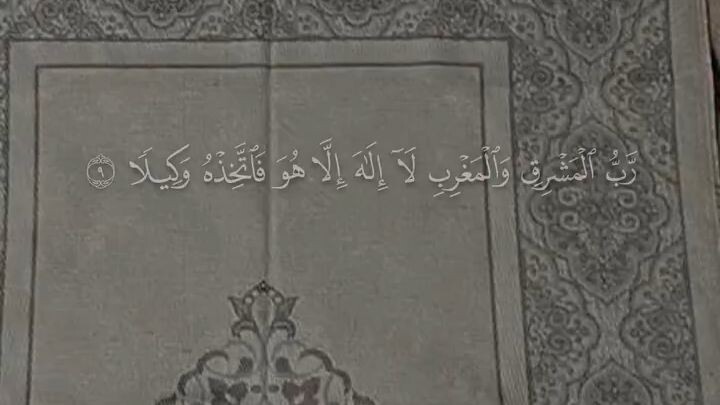 رَّبُّ ٱلْمَشْرِقِ وَٱلْمَغْرِبِ لَآ إِلَٰهَ إِلَّا هُوَ فَٱتَّخِذْهُ وَكِيلًا ۝٩